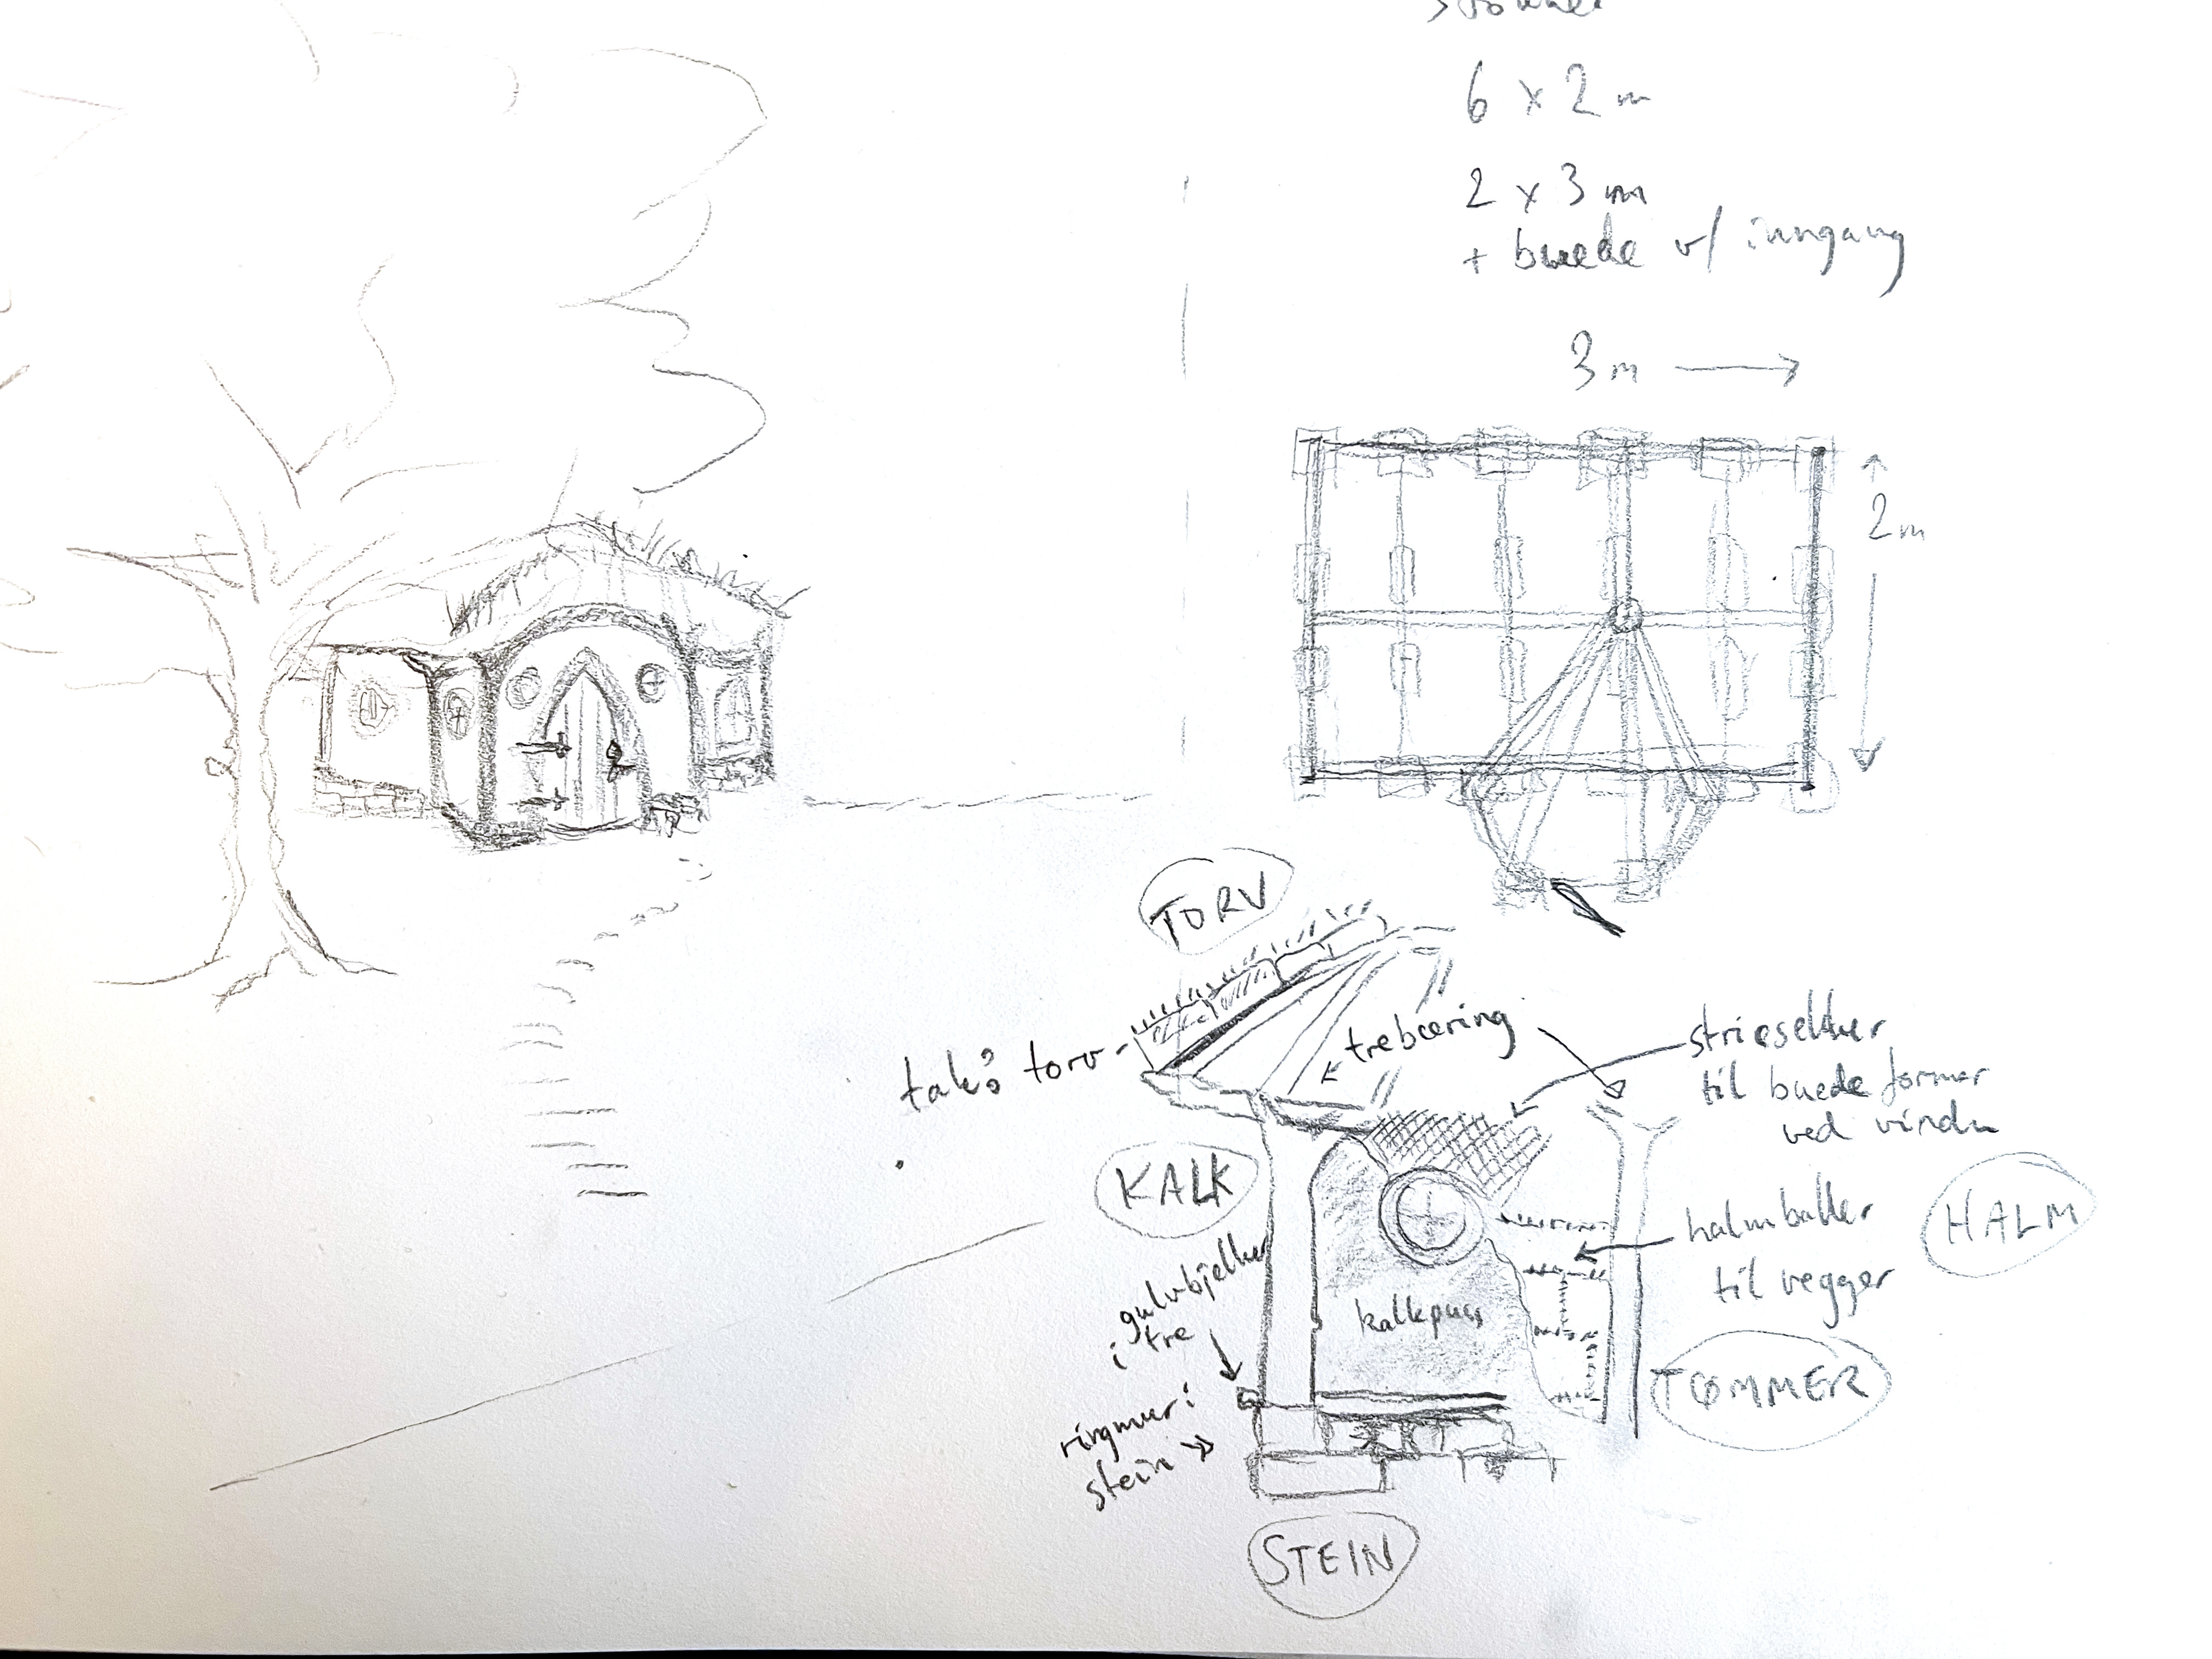 6 x 2 m
2 x 3 m
+ buede v/ inngang
3m
2m
TORV
tak: torv
trebæring
striesekker
til buede former
ved vindu
KALK
halmballer
til vegger
HALM
gulvbjelker
i tre
kalkpuss
TØMMER
ringmur i
stein
STEIN